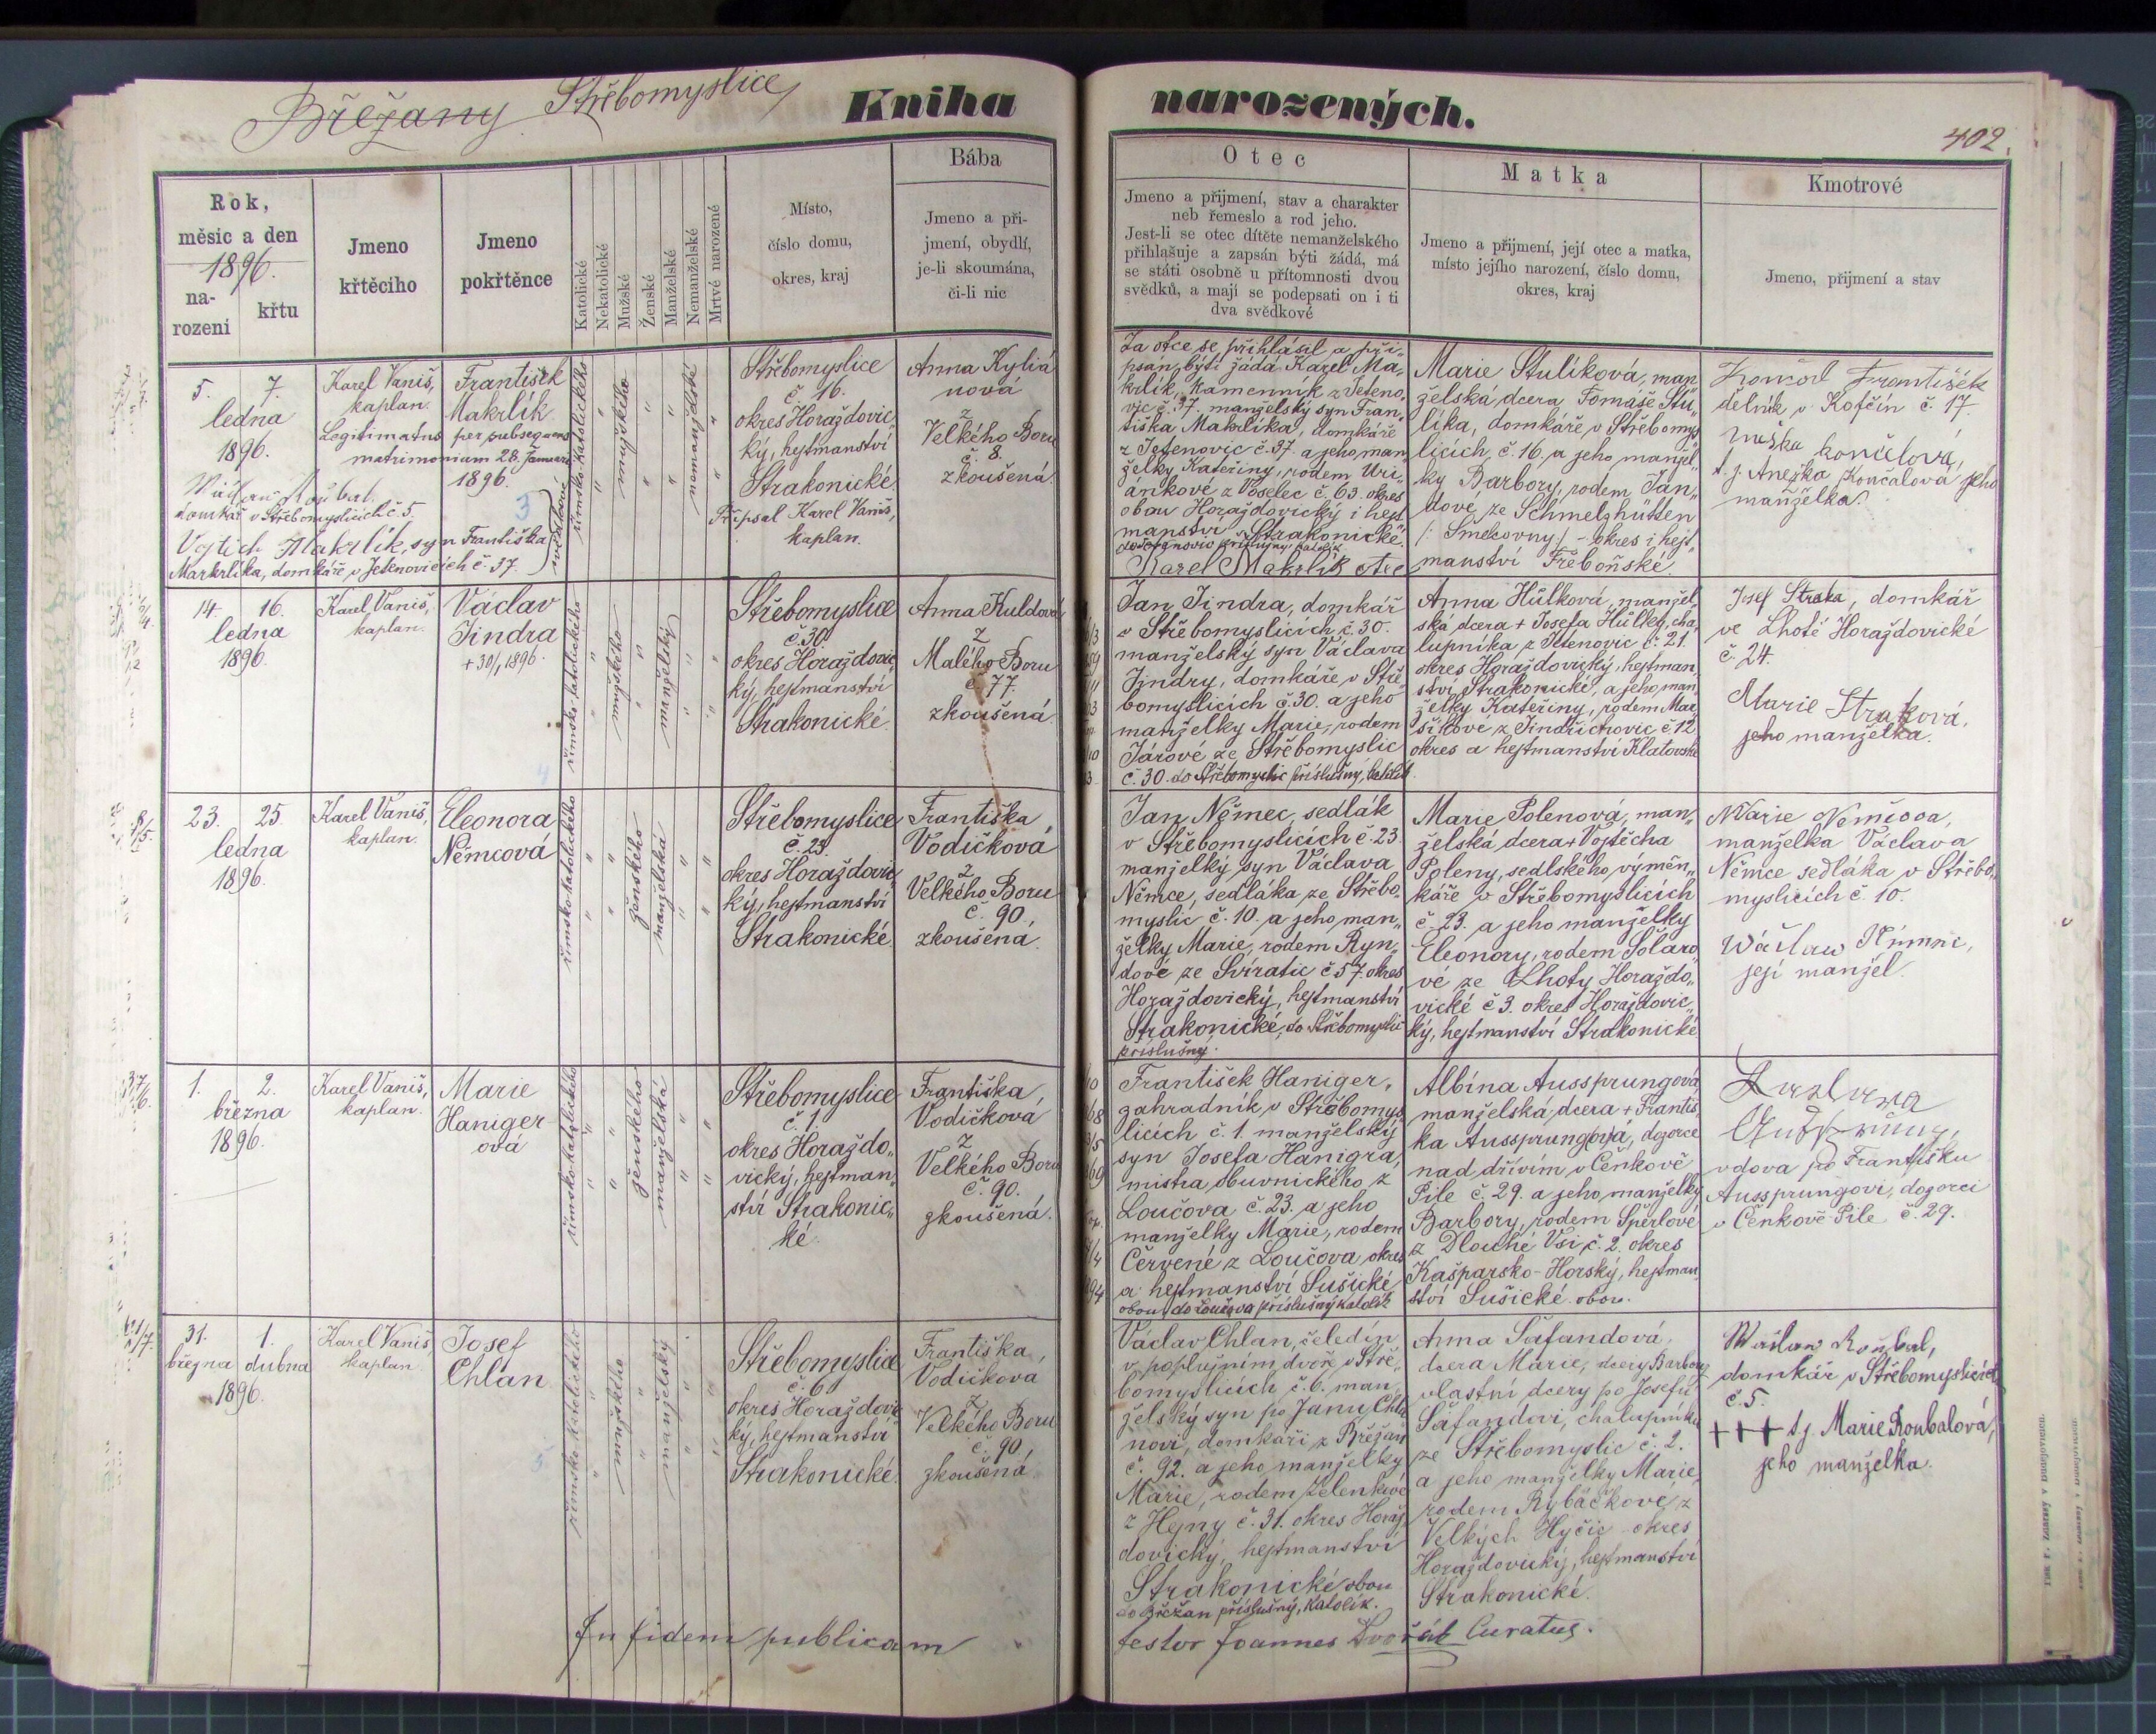 Břežany Střebomyslice
Kniha narozených.
402.
Rok,
měsic a den
1896.
na-
rození
křtu
Jmeno
křtěcího
Jmeno
pokřtěnce
Katolické
Nekatolické
Mužské
Ženské
Manželské
Nemanželské
Mrtvé narozené
Místo,
číslo domu,
okres, kraj
Bába
Jmeno a při-
jmení, obydlí,
je-li skoumána,
či-li nic
Otec
Jmeno a přijmení, stav a charakter
neb řemeslo a rod jeho.
Jest-li se otec dítěte nemanželského
přihlašuje a zapsán býti žádá, má
se státi osobně u přítomnosti dvou
svědků, a mají se podepsati on i ti
dva svědkové
Matka
Jmeno a přijmení, její otec a matka,
místo jejího narození, číslo domu,
okres, kraj
Kmotrové
Jmeno, přijmení a stav
5. 7.
ledna
1896.
Karel Vaniš,
kaplan.
František
Makrlík
Legitimatus per subsequens
matrimonium 28. Januarii
1896.
3
domkář v Střebomyslicích č. 5.
Vojtěch Makrlík, syn Františka
Markrlíka, domkáře v Jetenovicích č. 37.
svědkové
římsko-katolického
mužského
nemanželské
Střebomyslice
č. 16.
okres Horažďovic„
ký, hejtmanství
Strakonické
Připsal Karel Vaniš,
kaplan.
Anna Kyliá
nová
z
Velkého Boru
č. 8.
zkoušená.
Za otce se přihlásil a při„
psán býti žádá Karel Ma„
krlík, kamenník z Jeteno„
vic č. 37. manželský syn Fran„
tiška Makrlíka, domkáře
z Jetenovic č. 37. a jeho man„
želky Kateřiny, rodem Uri„
ánkové z Vöselec č. 63. okres
obou Horažďovický i hejt„
manství Strakonické.
do Jetenovic příslušný, katolík.
Karel Makrlík otec
Marie Stulíková, man„
želská dcera Tomáše Stu„
líka, domkáře v Střebomys„
licích, č. 16, a jeho manžel„
ky Barbory, rodem Jan„
dové ze Schmelzhütten
/: Šmelcovny:/ - okres i hejt„
manství Třeboňské.
Končal František
dělník v Kofčín č. 17.
t. j. Anežka Končalová jeho
manželka.
14. 16.
ledna
1896.
Karel Vaniš,
kaplan.
Václav
Jindra
+ 30/1 1896.
4
římsko-katolického
mužského
manželský
Střebomyslice
č. 30.
okres Horažďovic„
ký, hejtmanství
Strakonické.
Anna Kuldová
z
Malého Boru
č. 77.
zkoušená.
Jan Jindra, domkář
v Střebomyslicích, č. 30.
manželský syn Václava
Jindry, domkáře v Stře„
bomyslicích č. 30. a jeho
manželky Marie, rodem
Járové ze Střebomyslic
č. 30. do Střebomyslic příslušný, katolík.
Anna Hůlková, manžel„
ská dcera + Josefa Hůlky, cha„
lupníka z Jetenovic č. 21.
okres Horažďovický, hejtman„
ství Strakonické, a jeho man„
želky Kateřiny, rodem Mar„
šíkové z Jindřichovic č. 12
okres a hejtmanství Klatovské
Josef Straka, domkář
ve Lhotě Horažďovické
č. 24.
Marie Straková,
jeho manželka.
23. 25.
ledna
1896.
Karel Vaniš,
kaplan.
Eleonora
Němcová
římsko-katolického
ženského
manželská
Střebomyslice
č. 23.
okres Horažďovic„
ký, hejtmanství
Strakonické.
Františka
Vodičková
z
Velkého Boru
č. 90.
zkoušená.
Jan Němec, sedlák
v Střebomyslicích č. 23.
manželký syn Václava
Němce, sedláka ze Střebo„
myslic č. 10. a jeho man„
želky Marie, rodem Ryn„
dové ze Svíratic č. 57. okres
Horažďovický, hejtmanství
Strakonické, do Střebomyslic
příslušný.
Marie Polenová, man„
želská dcera + Vojtěcha
Poleny, sedlského výměn„
káře v Střebomyslicích
č. 23. a jeho manželky
Eleonory, rodem Šolaro„
vé ze Lhoty Horažďo„
vické č. 3. okres Horažďovic„
ký, hejtmanství Strakonické.
Marie Němcova,
manželka Václava
Němce sedláka v Střebo„
myslicích č. 10.
Wáclaw Němec,
její manžel.
1. 2.
března
1896.
Karel Vaniš,
kaplan.
Marie
Haniger-
ová
římsko-katolického
ženského
manželská
Střebomyslice
č. 1.
okres Horažďo„
vický, hejtman„
ství Strakonic„
ké.
Františka
Vodičková
z
Velkého Boru
č. 90.
zkoušená.
František Haniger,
zahradník v Střebomys„
licích č. 1. manželský
syn Josefa Hanigra,
mistra obuvnického z
Loučova č. 23. a jeho
manželky Marie, rodem
Červené z Loučova, okres
a hejtmanství Sušické
obou, do Loučova příslušný katolík
Albína Aussprungová
manželská dcera + Františ„
ka Aussprung(ov)á, dozorce
nad dřívím v Čenkově
Pile č. 29. a jeho manželky
Barbory, rodem Šperlové
z Dlouhé Vsi č. 2. okres
Kašparsko-Horský, hejtman„
ství Sušické obou.
vdova po Františku
Aussprungovi, dozorci
v Čenkově Pile č. 29.
31. 1.
března dubna
1896.
Karel Vaniš
kaplan.
Josef
Chlan
5
římsko-katolického
mužského
manželský
Střebomyslice
č. 6.
okres Horažďovic„
ký, hejtmanství
Strakonické.
Františka
Vodičková
z
Velkého Boru
č. 90.
zkoušená.
Václav Chlan, čeledín
v poplužním dvoře v Stře„
bomyslicích č. 6. man„
želský syn po Janu Chla
novi, domkáři z Břežan
č. 92. a jeho manželky
Marie, rodem Zelenkové
z Hejny č. 31. okres Horaž„
dovický, hejtmanství
Strakonické obou
do Břežan příslušný, katolík.
Anna Šafandová,
dcera Marie, dcery Barbory
vlastní dcery po Josefu
Šafandovi, chalupníku
ze Střebomyslic č. 2.
a jeho manželky Marie,
rodem Rybáčkové z
Velkých Hyčic okres
Horažďovický, hejtmanství
Strakonické.
Wáclav Roubal,
domkář v Střebomyslicích
č. 5.
+++ t. j. Marie Roubalová,
jeho manželka.
In fidem publicam
testor Joannes Dvořák Curatus.